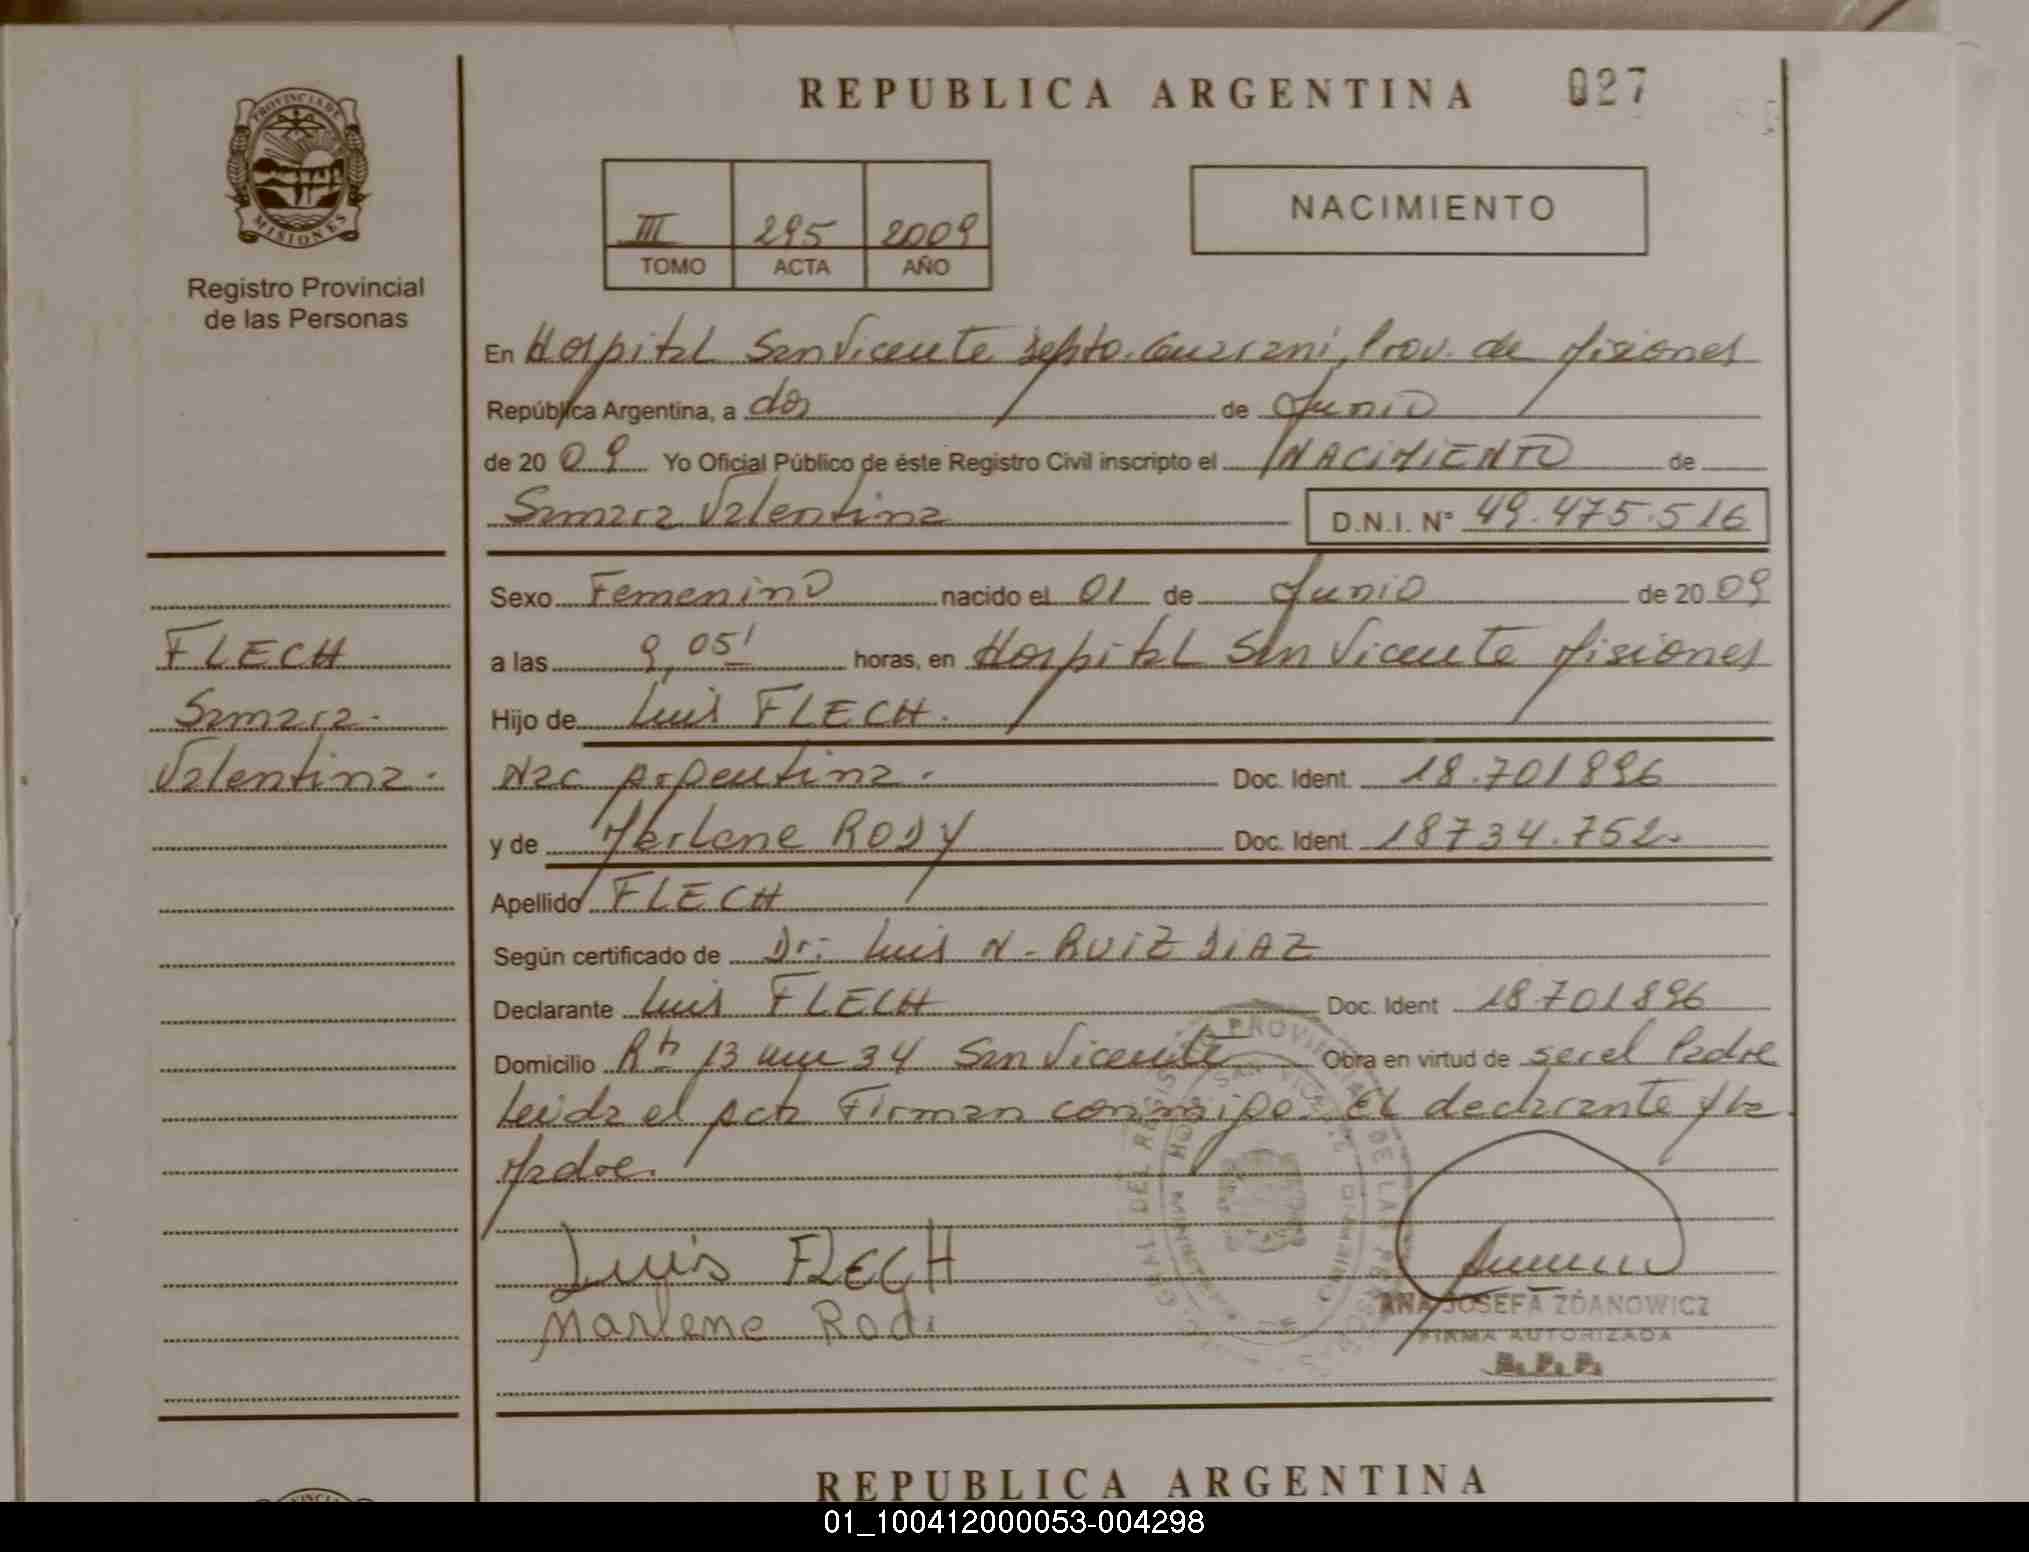 REPUBLICA ARGENTINA 027
PROVINCIA DE
MISIONES
Registro Provincial
de las Personas
III 295 2009
TOMO ACTA AÑO
NACIMIENTO
En Hospital San Vicente Depto. Guarani, Prov. de Misiones
República Argentina, a dos de Junio
de 20 09 Yo Oficial Público de éste Registro Civil inscripto el NACIMIENTO de
Samara Valentina D.N.I. N° 49.475.516
Sexo Femenino nacido el 01 de Junio de 20 09
a las 9,05' horas, en Hospital San Vicente Misiones
Hijo de Luis FLECH.
Nac Argentina. Doc. Ident. 18.701896
y de Marlene RODY Doc. Ident. 18734.752.
Apellido FLECH
Según certificado de Dr: Luis N. RUIZ DIAZ
Declarante Luis FLECH Doc. Ident 18.701896
Domicilio Rta 13 km 34 San Vicente Obra en virtud de ser el Padre
Leida el acta Firman conmigo. El declarante y la
Madre.
FLECH
Samara.
Valentina.
Luis FLECH
Marlene Rodi
ANA JOSEFA ZDANOWICZ
FIRMA AUTORIZADA
R.P.P.
REPUBLICA ARGENTINA
01_100412000053-004298